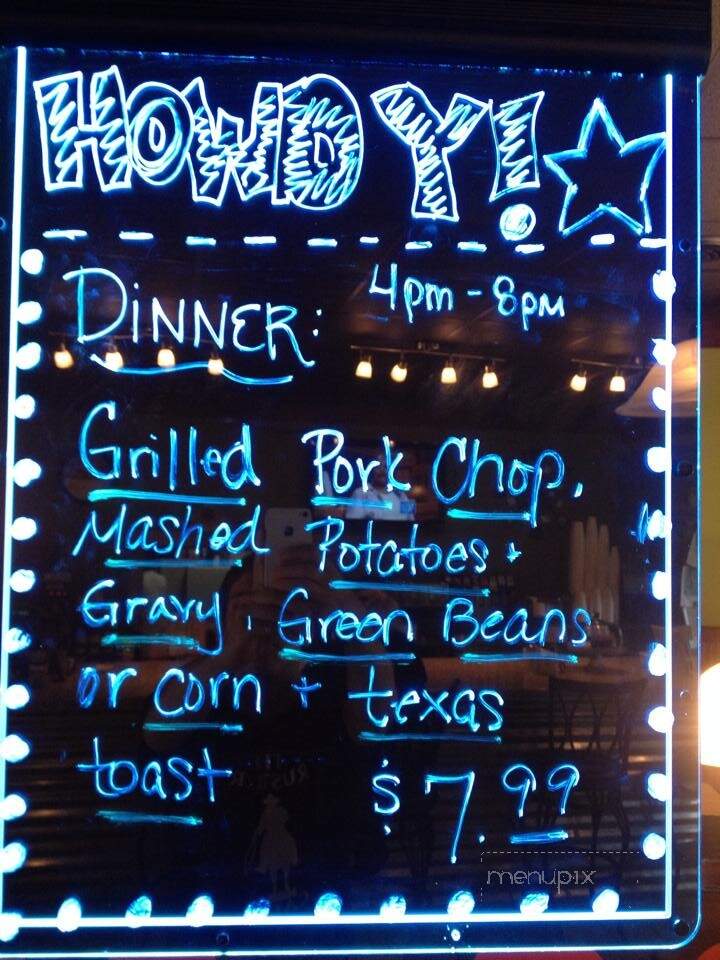 HOWDY!
DiNNER: 4pm - 8pm
Grilled Pork Chop,
Mashed Potatoes +
Gravy, Green Beans
or Corn + texas
toast $7.99
menupix